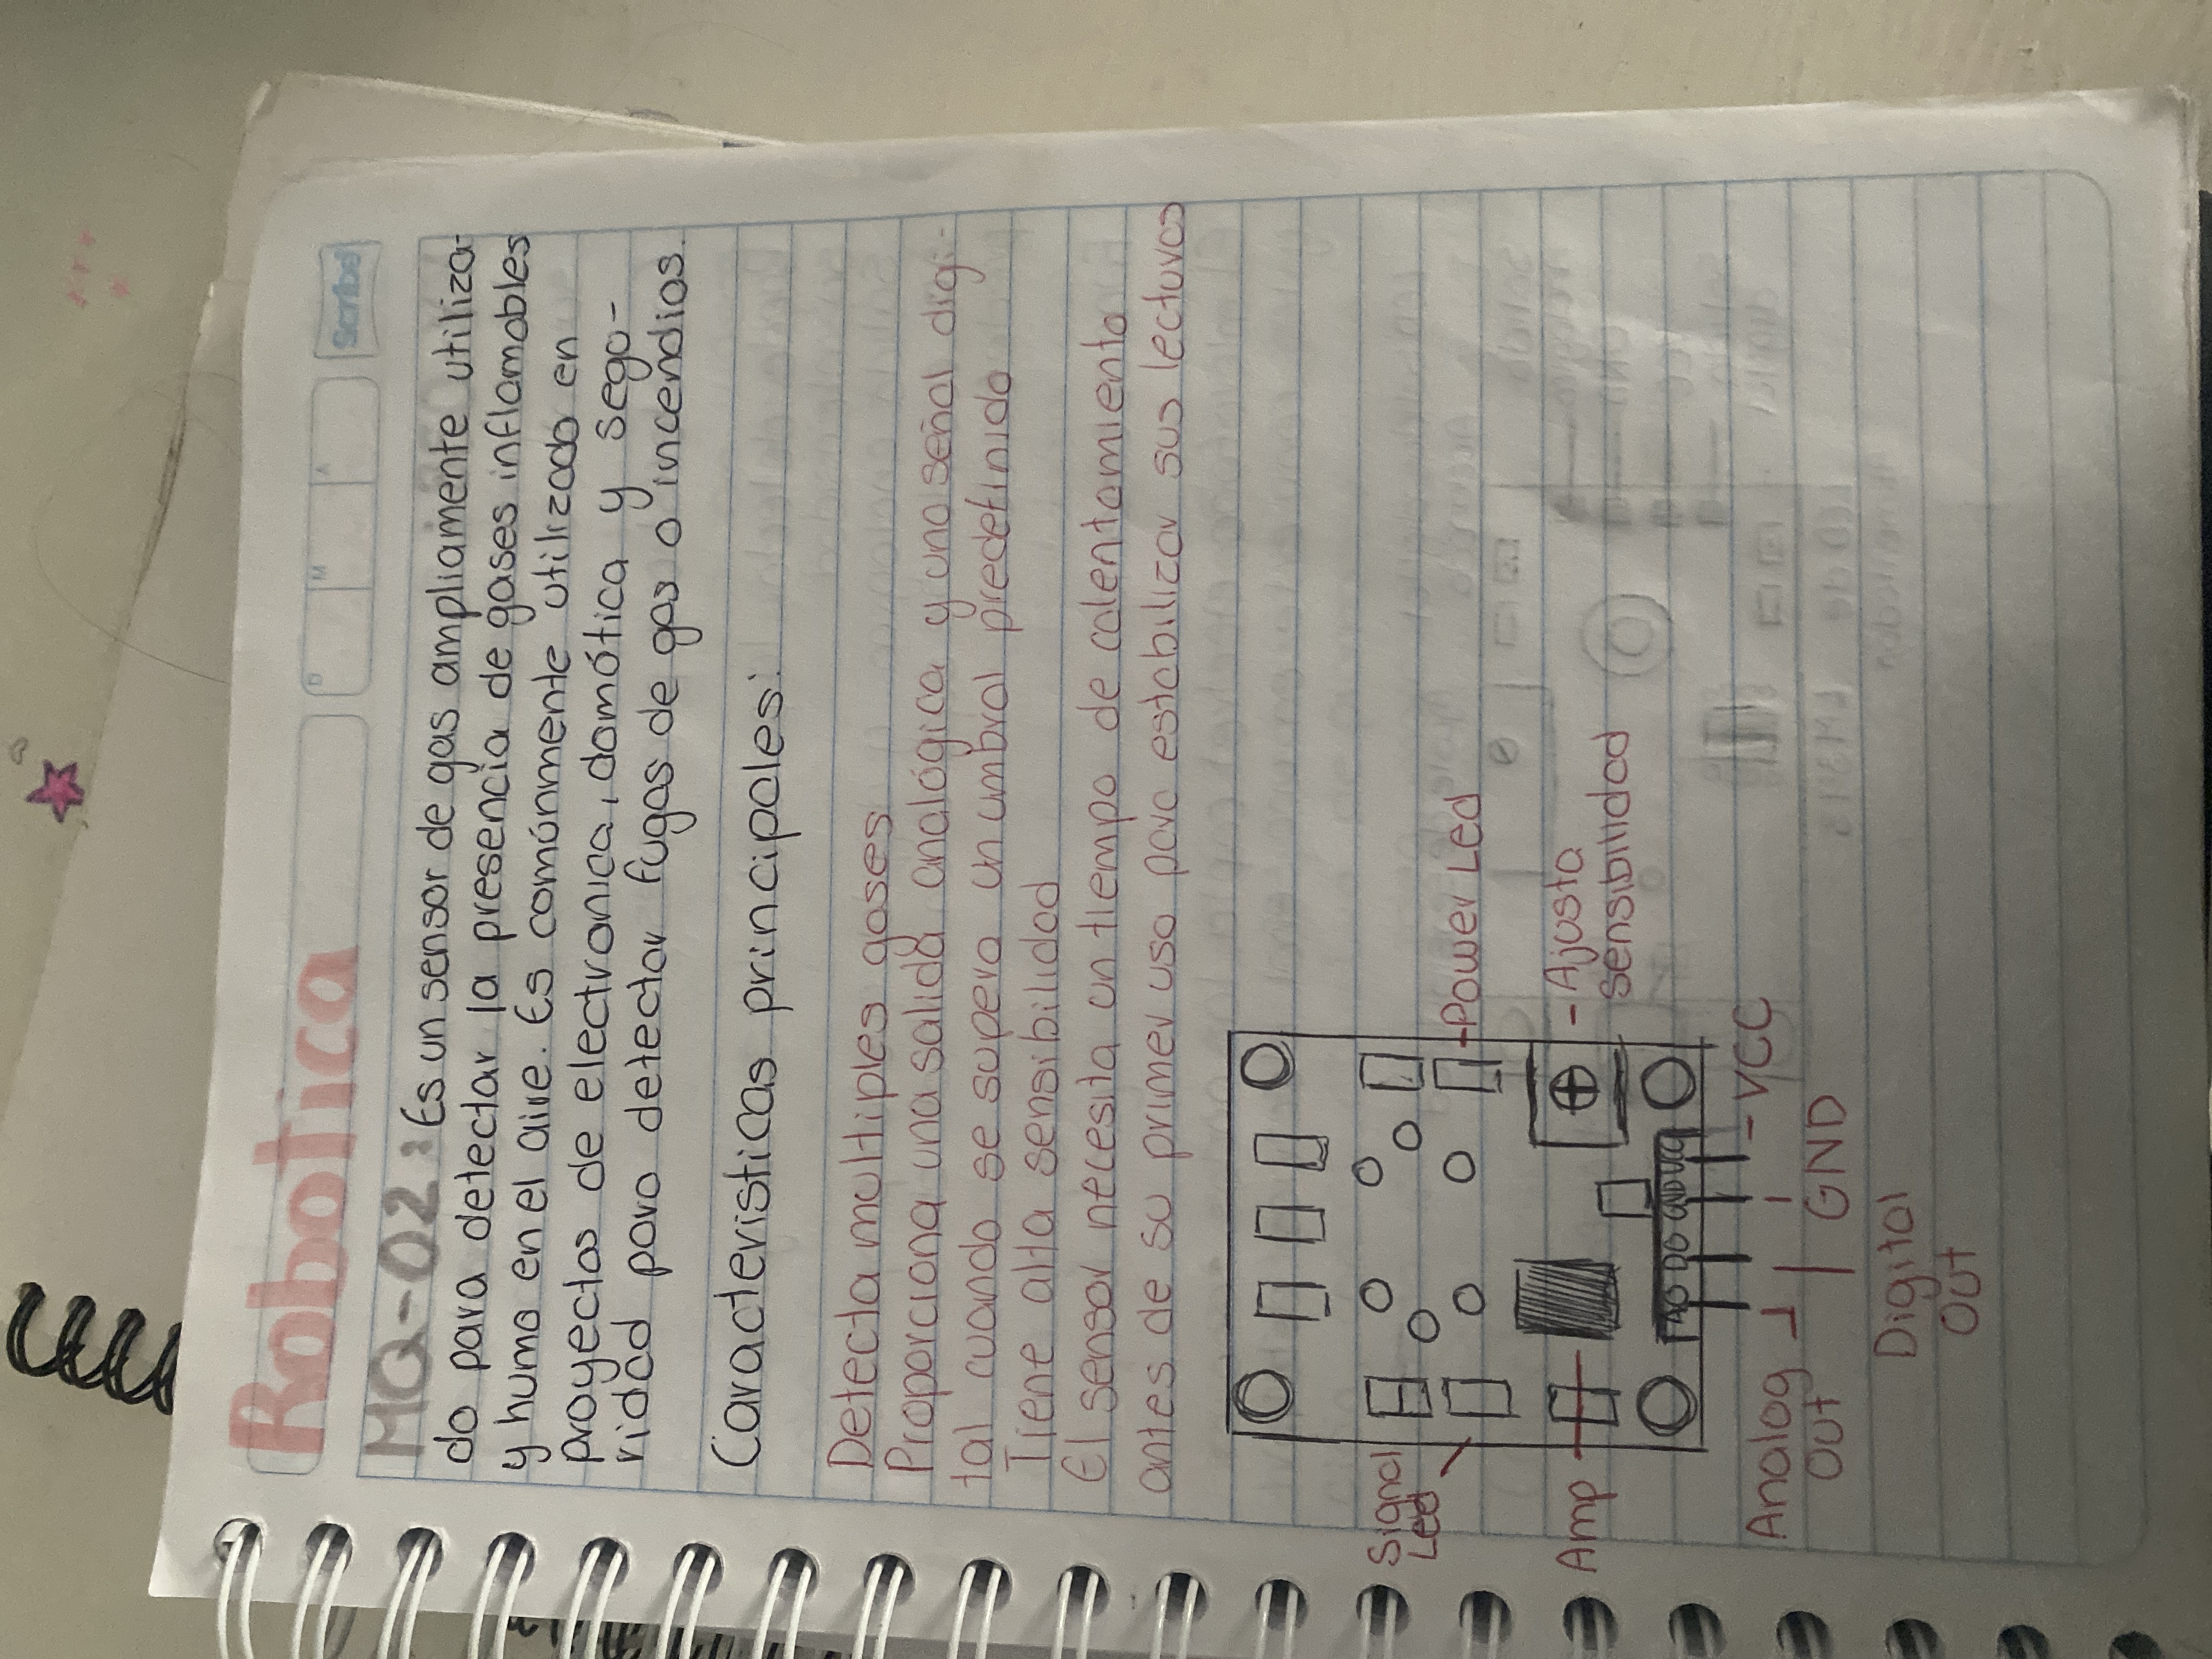 Robotica
Scribe
D M A
MQ-02: Es un sensor de gas ampliamente utiliza-
do para detectar la presencia de gases inflamables
y humo en el aire. Es comúnmente utilizado en
proyectos de electronica, domótica y segu-
ridad para detectar fugas de gas o incendios.
Caracteristicas principales:
Detecta multiples gases
Proporciona una salida analógica y una señal digi-
tal cuando se supera un umbral predefinido
Tiene alta sensibilidad
El sensor necesita un tiempo de calentamiento
antes de su primer uso para estabilizar sus lecturas
Signal
Led
Power Led
Amp
Ajusta
sensibilidad
AO DO GND VCC
Analog
Out
VCC
GND
Digital
Out